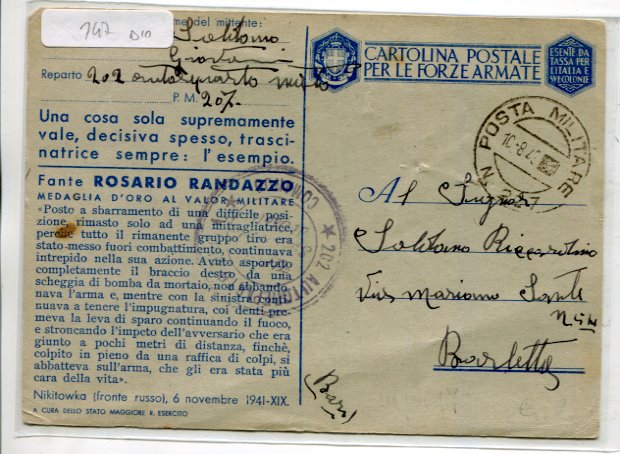 747 D10
me del mittente:
Soldano
Giovanni
Reparto 202 autoreparto misto
P. M. 207.
Una cosa sola supremamente
vale, decisiva spesso, trasci-
natrice sempre: l'esempio.
Fante ROSARIO RANDAZZO
MEDAGLIA D'ORO AL VALOR MILITARE
«Posto a sbarramento di una difficile posi-
zione, rimasto solo ad una mitragliatrice,
perchè tutto il rimanente gruppo tiro era
stato messo fuori combattimento, continuava
intrepido nella sua azione. Avuto asportato
completamente il braccio destro da una
scheggia di bomba da mortaio, non abbando-
nava l'arma e, mentre con la sinistra conti-
nuava a tenere l'impugnatura, coi denti pre-
meva la leva di sparo continuando il fuoco,
e stroncando l'impeto dell'avversario che era
giunto a pochi metri di distanza, finchè,
colpito in pieno da una raffica di colpi, si
abbatteva sull'arma, che gli era stata più
cara della vita».
Nikitowka (fronte russo), 6 novembre 1941-XIX.
A CURA DELLO STATO MAGGIORE R. ESERCITO
★ 202 AUTO
COM
CARTOLINA POSTALE
PER LE FORZE ARMATE
ESENTE DA
TASSA PER
L'ITALIA E
SUE COLONIE
POSTA MILITARE
N. 207
Al Signor
Soldano
Via Mariano Sante
Barletta
(Bari)